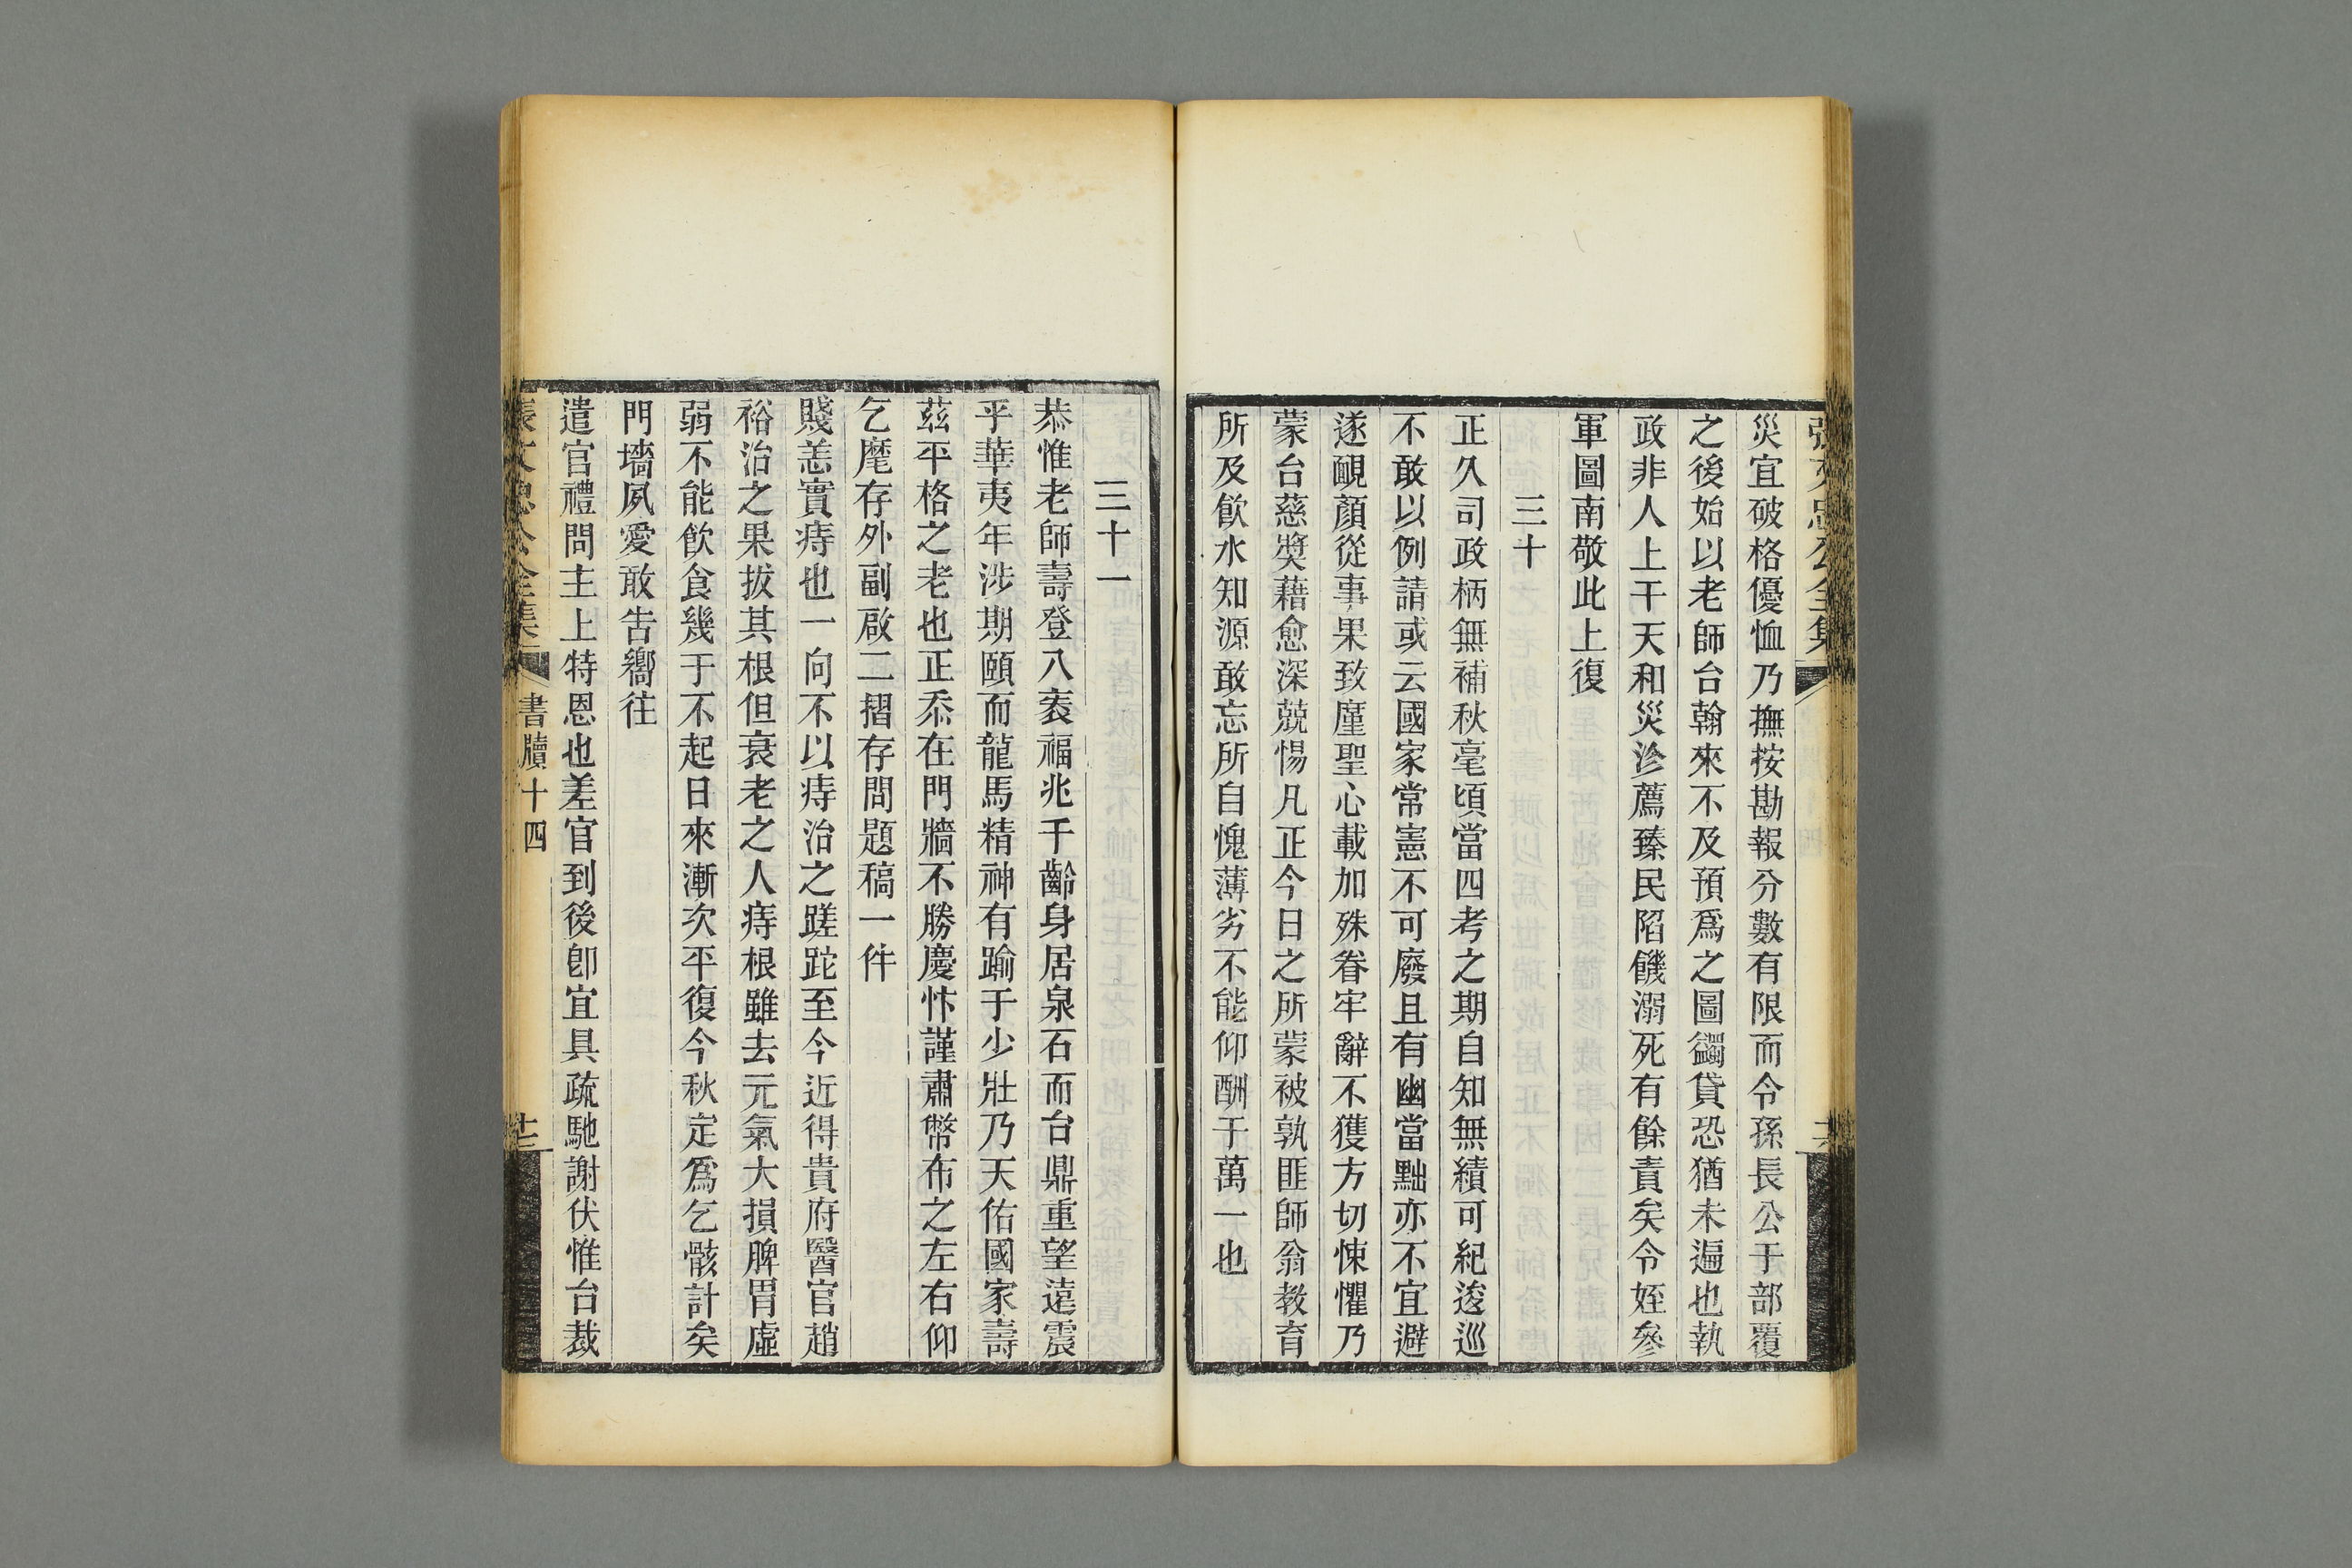 張文忠公全集
災宜破格優恤乃撫按勘報分數有限而令孫長公于部覆
之後始以老師台翰來不及預爲之圖蠲貸恐猶未遍也執
政非人上干天和災沴薦臻民陷饑溺死有餘責矣令姪參
軍圖南敬此上復
三十
正久司政柄無補秋毫頃當四考之期自知無績可紀逡巡
不敢以例請或云國家常憲不可廢且有幽當黜亦不宜避
遂靦顏從事果致廑聖心載加殊眷牢辭不獲方切悚懼乃
蒙台慈獎藉愈深兢惕凡正今日之所蒙被孰匪師翁教育
所及飲水知源敢忘所自愧薄劣不能仰酬于萬一也
三十一
恭惟老師壽登八袠福兆千齡身居泉石而台鼎重望遠震
乎華夷年涉期頤而龍馬精神有踰于少壯乃天佑國家壽
茲平格之老也正忝在門牆不勝慶忭謹肅幣布之左右仰
乞麾存外副啟二摺存間題稿一件
賤恙實痔也一向不以痔治之蹉跎至今近得貴府醫官趙
裕治之果拔其根但衰老之人痔根雖去元氣大損脾胃虛
弱不能飲食幾于不起日來漸次平復今秋定爲乞骸計矣
門墻夙愛敢告嚮往
遣官禮問主上特恩也差官到後卽宜具疏馳謝伏惟台裁
張文忠公全集
書牘十四